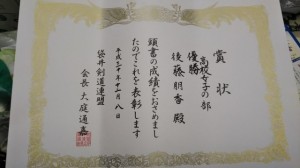 賞状
高段女子の部
優勝
後藤明香 殿
頭書の成績をおさめまし
たのでこれを表彰します
平成三十年十一月八日
袋井剣道連盟
会長 大庭通嘉